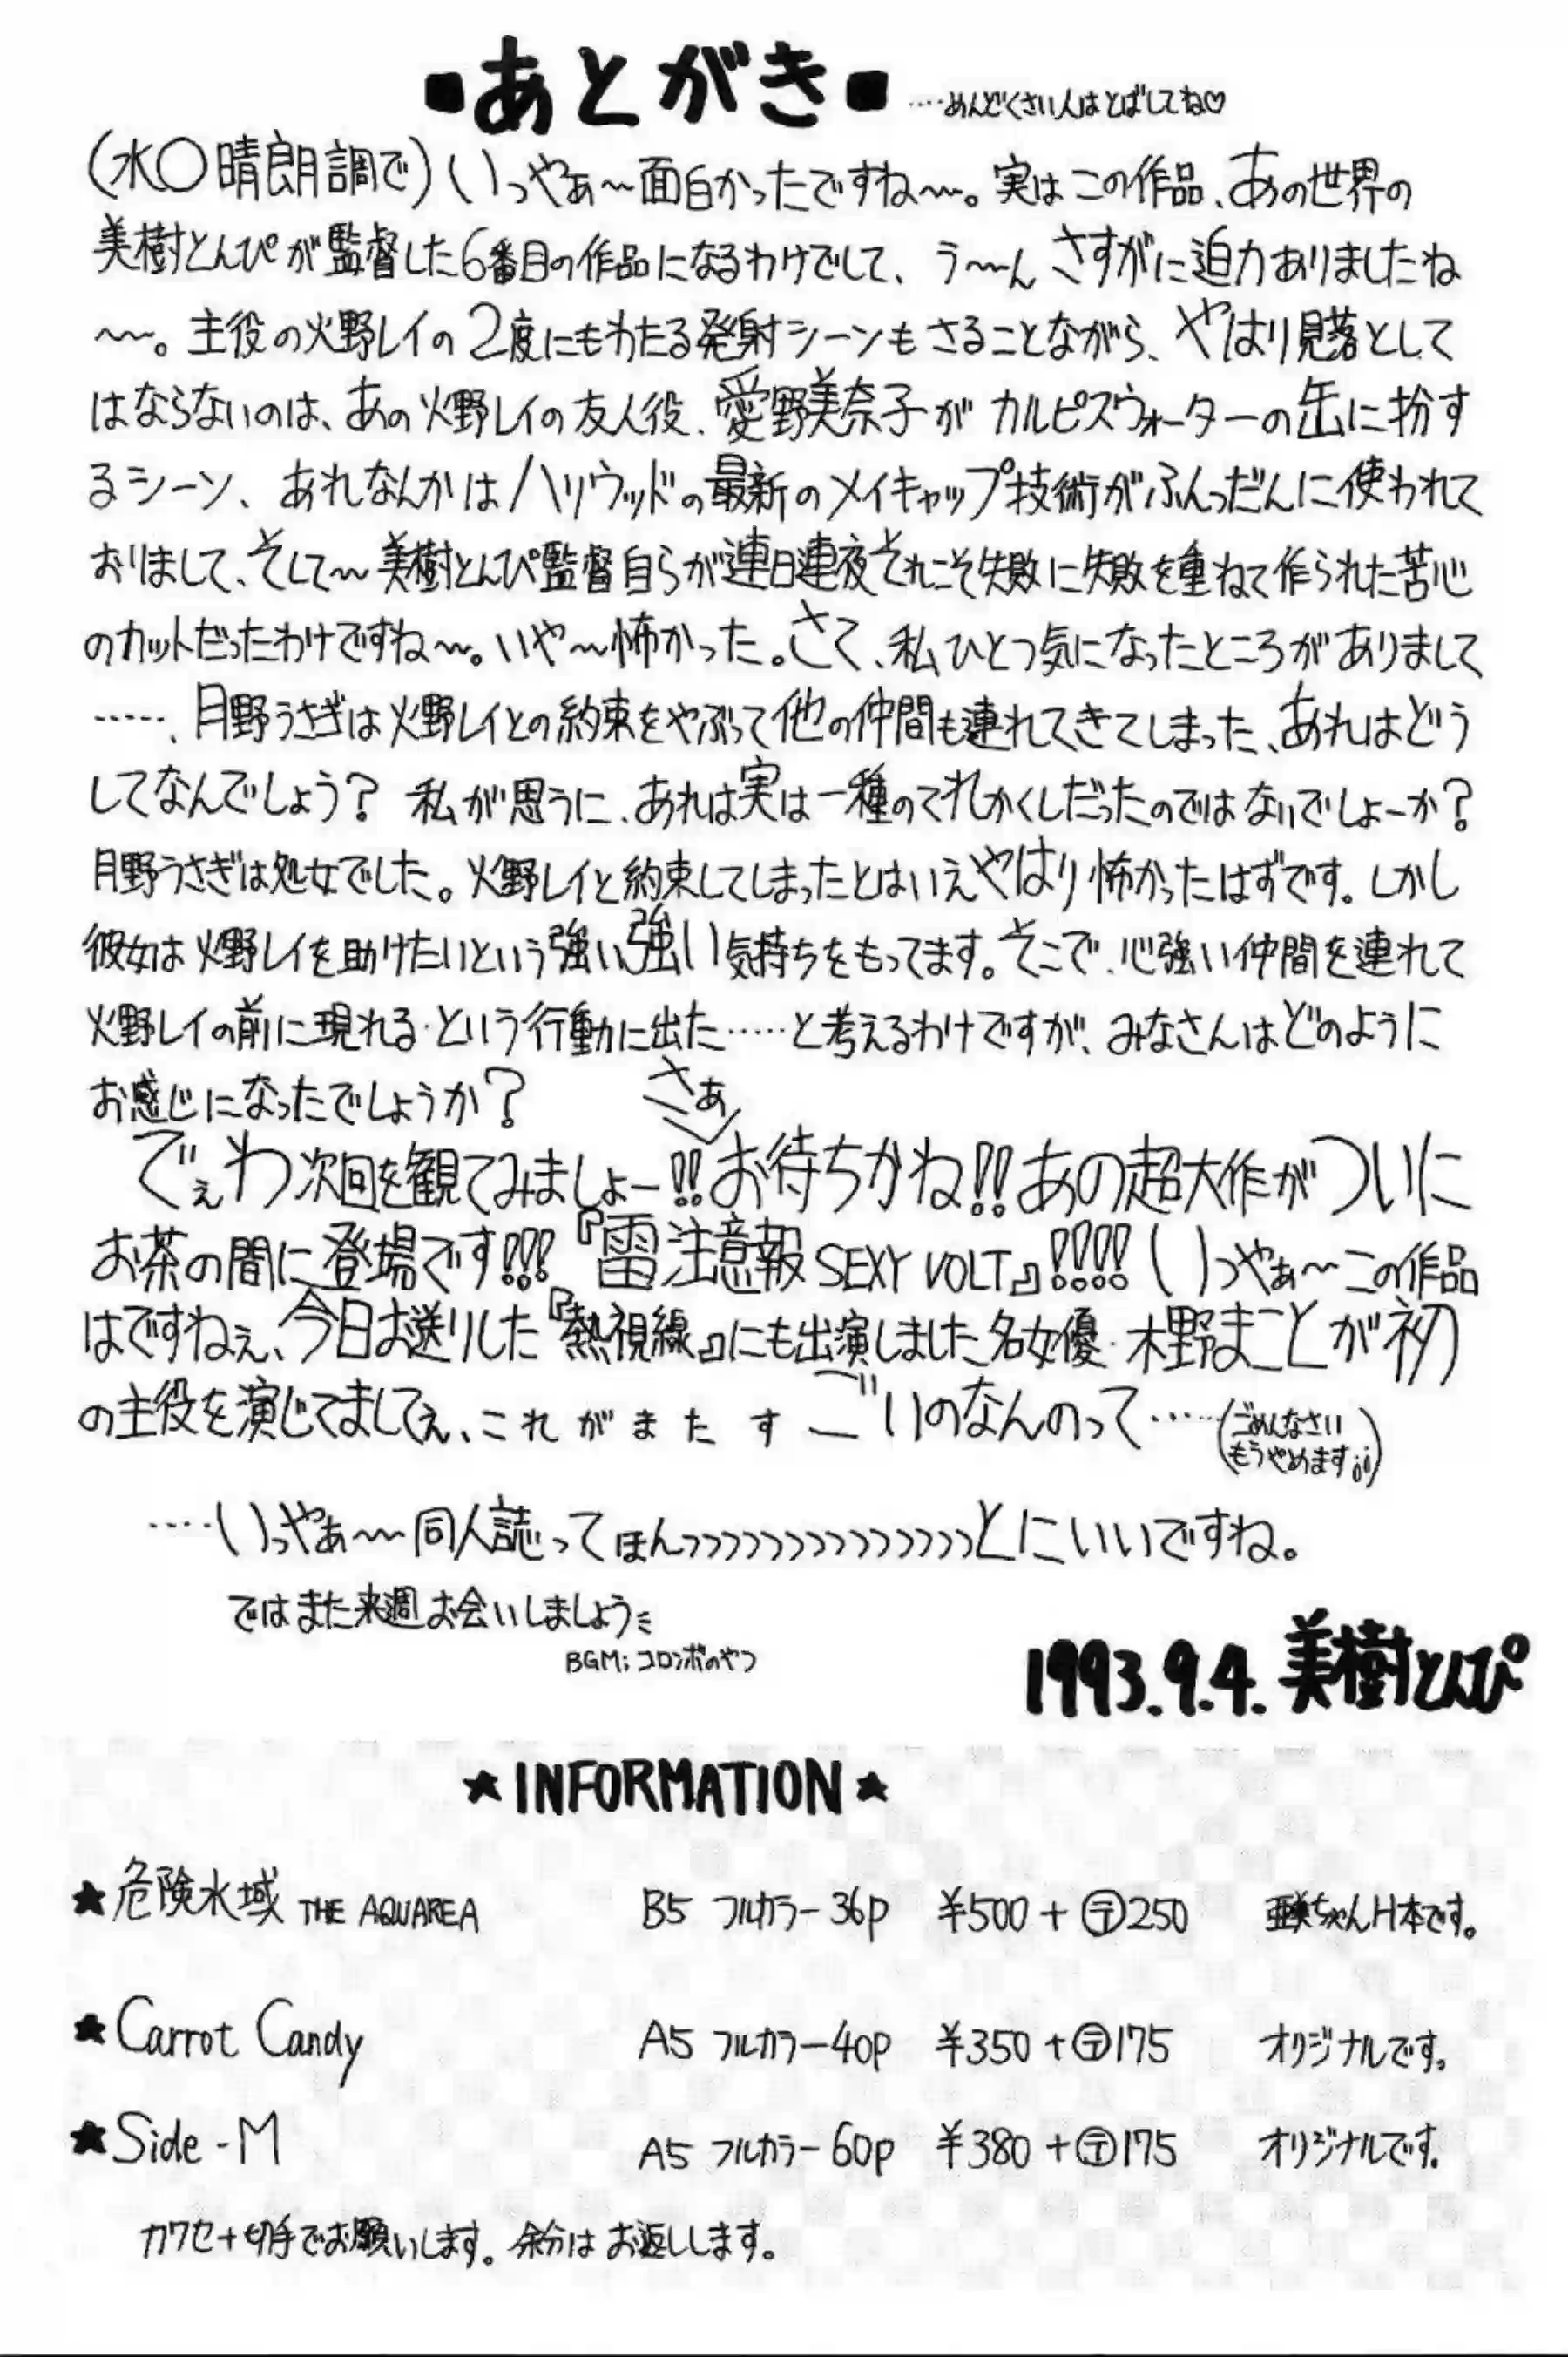 ■あとがき■ ‥‥めんどくさい人はとばしてね♡
(水〇晴朗調で)いっやぁ〜面白かったですね〜。実はこの作品、あの世界の
美樹とんぴが監督した6番目の作品になるわけでして、う〜んさすがに迫力ありましたね
〜。主役の火野レイの2度にもわたる発射シーンもさることながら、やはり見落として
はならないのは、あの火野レイの友人役、愛野美奈子がカルピスウォーターの缶に扮す
るシーン、あれなんかはハリウッドの最新のメイキャップ技術がふんっだんに使われて
おりまして、そして〜美樹とんぴ監督自らが連日連夜それこそ失敗に失敗を重ねて作られた苦心
のカットだったわけですね〜。いや〜怖かった。さて、私ひとつ気になったところがありまして
‥‥‥、月野うさぎは火野レイとの約束をやぶって他の仲間も連れてきてしまった、あれはどう
してなんでしょう? 私が思うに、あれは実は一種のてれかくしだったのではないでしょーか?
月野うさぎは処女でした。火野レイと約束してしまったとはいえやはり怖かったはずです。しかし
彼女は火野レイを助けたいという強い強い気持ちをもってます。そこで、心強い仲間を連れて
火野レイの前に現れる・という行動に出た‥‥‥と考えるわけですが、みなさんはどのように
お感じになったでしょうか?
さぁ
でぇわ次回を観てみましょー!!お待ちかね!!あの超大作がついに
お茶の間に登場です!!!『雷注意報SEXY VOLT』!!!!いっやぁ〜この作品
はですねぇ、今日お送りした『熱視線』にも出演しました名女優・木野まことが初
の主役を演じてましてぇ、これがまたすごいのなんのって‥‥‥(ごめんなさい
もうやめます;;)
‥‥いっやぁ〜同人誌ってほんっっっっっっっっっっっっっっっとにいいですね。
ではまた来週お会いしましょう
BGM;コロンボのやつ
1993.9.4.美樹とんぴ
★INFORMATION★
★危険水域 THE AQUAREA B5 フルカラー36p ¥500+〒250 亜美ちゃんH本です。
★Carrot Candy A5 フルカラー40p ¥350+〒175 オリジナルです。
★Side-M A5 フルカラー60p ¥380+〒175 オリジナルです。
カワセ+切手でお願いします。余分はお返しします。